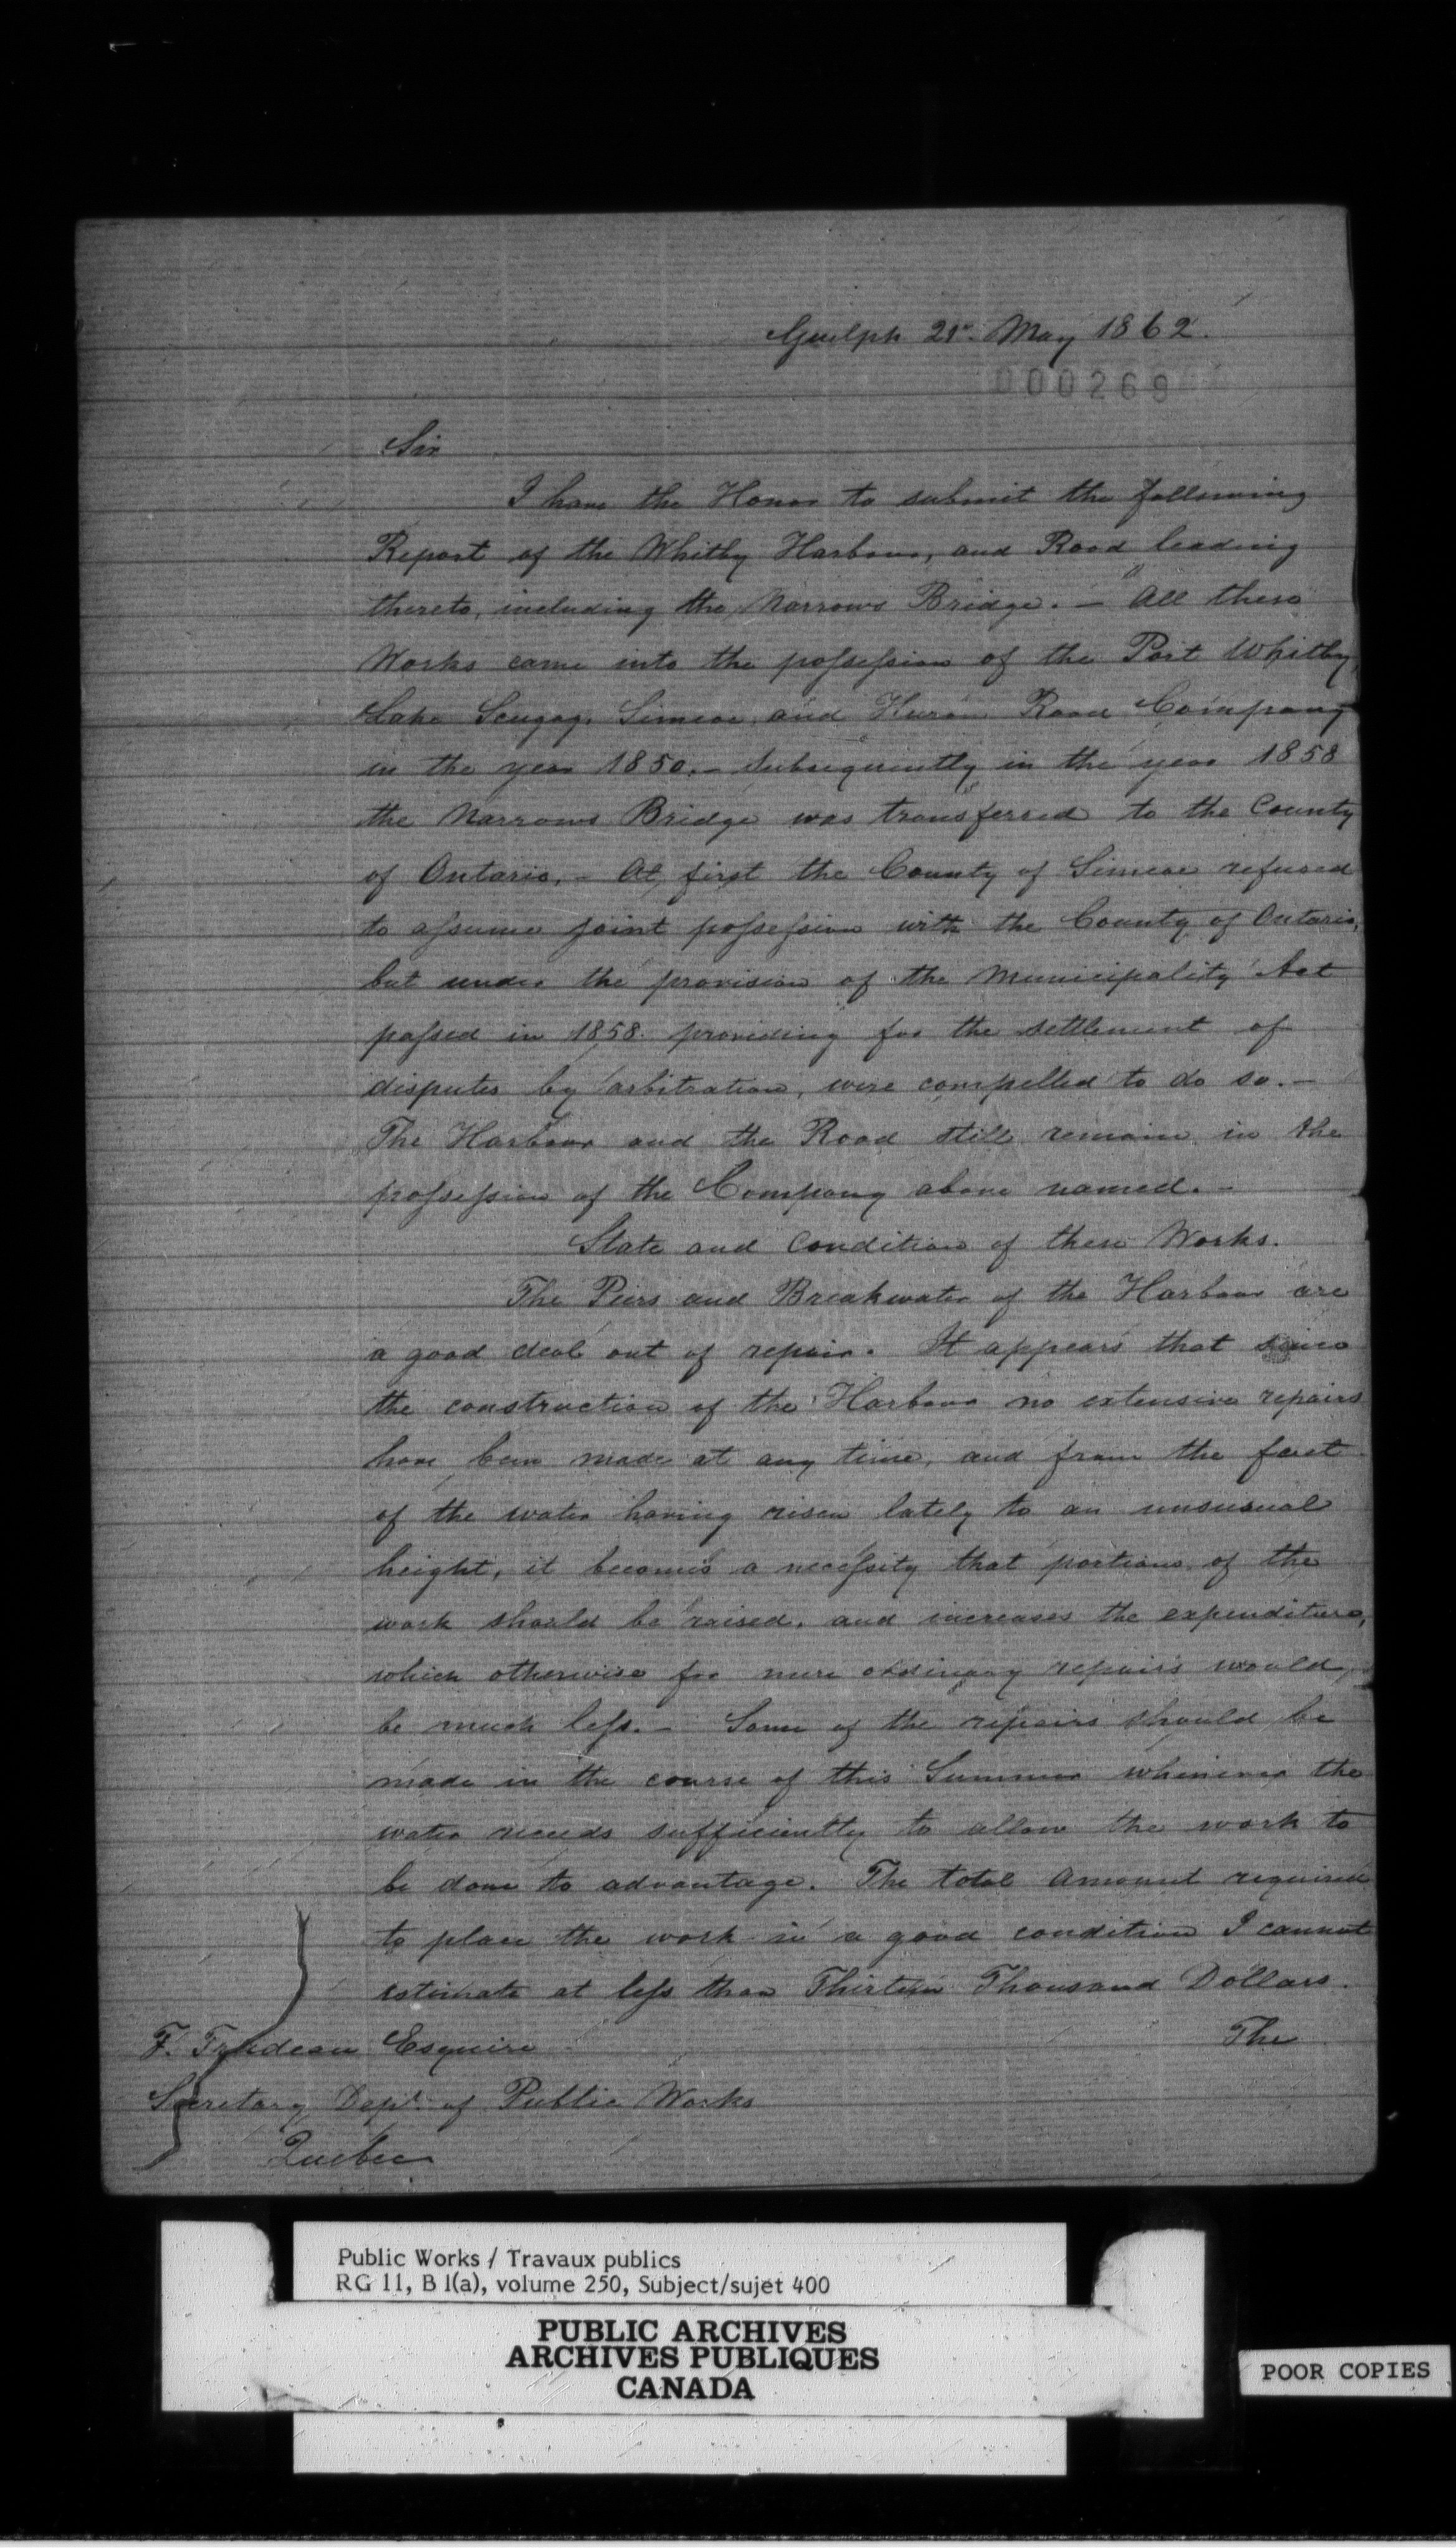 Guelph 21st. May 1862.
000269
Sir
I have the Honor to submit the following
Report of the Whitby Harbour, and Road leading
thereto, including the Narrows Bridge. — All these
Works came into the possession of the Port Whitby,
Lake Scugog, Simcoe, and Huron Road Company
in the year 1850. — Subsequently in the year 1858
the Narrows Bridge was transferred to the County
of Ontario, — At first the County of Simcoe refused
to assume joint possession with the County of Ontario,
but under the provision of the Municipality Act
passed in 1858. providing for the settlement of
disputes by arbitration, were compelled to do so. —
The Harbour and the Road still remain in the
possession of the Company above named. —
State and Condition of these Works.
The Piers and Breakwater of the Harbour are
a good deal out of repair. It appears that since
the construction of the Harbour no extensive repairs
have been made at any time, and from the fact
of the water having risen lately to an unsusual
height, it becomes a necessity that portions of the
work should be raised, and increases the expenditure,
which otherwise for mere ordinary repairs would,
be much less. — Some of the repairs should be
made in the course of this Summer whenever the
water receeds sufficiently to allow the work to
be done to advantage. The total amount required
to place the work in a good condition I cannot
estimate at less than Thirteen Thousand Dollars.
The
F. Trudeau Esquire
Secretary Dept. of Public Works
Quebec
Public Works / Travaux publics
RG 11, B 1(a), volume 250, Subject/sujet 400
PUBLIC ARCHIVES
ARCHIVES PUBLIQUES
CANADA
POOR COPIES